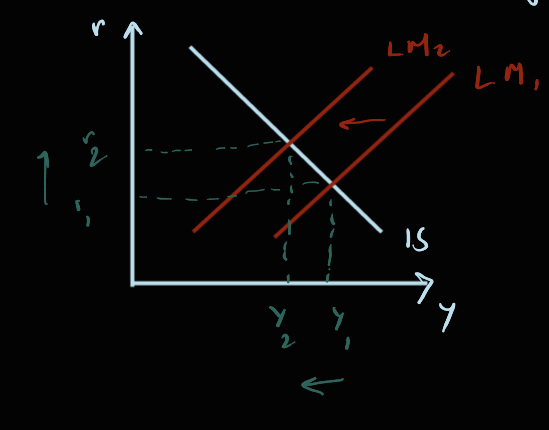 r
LM₂
LM₁
r₂
r₁
IS
Y₂ Y₁
Y